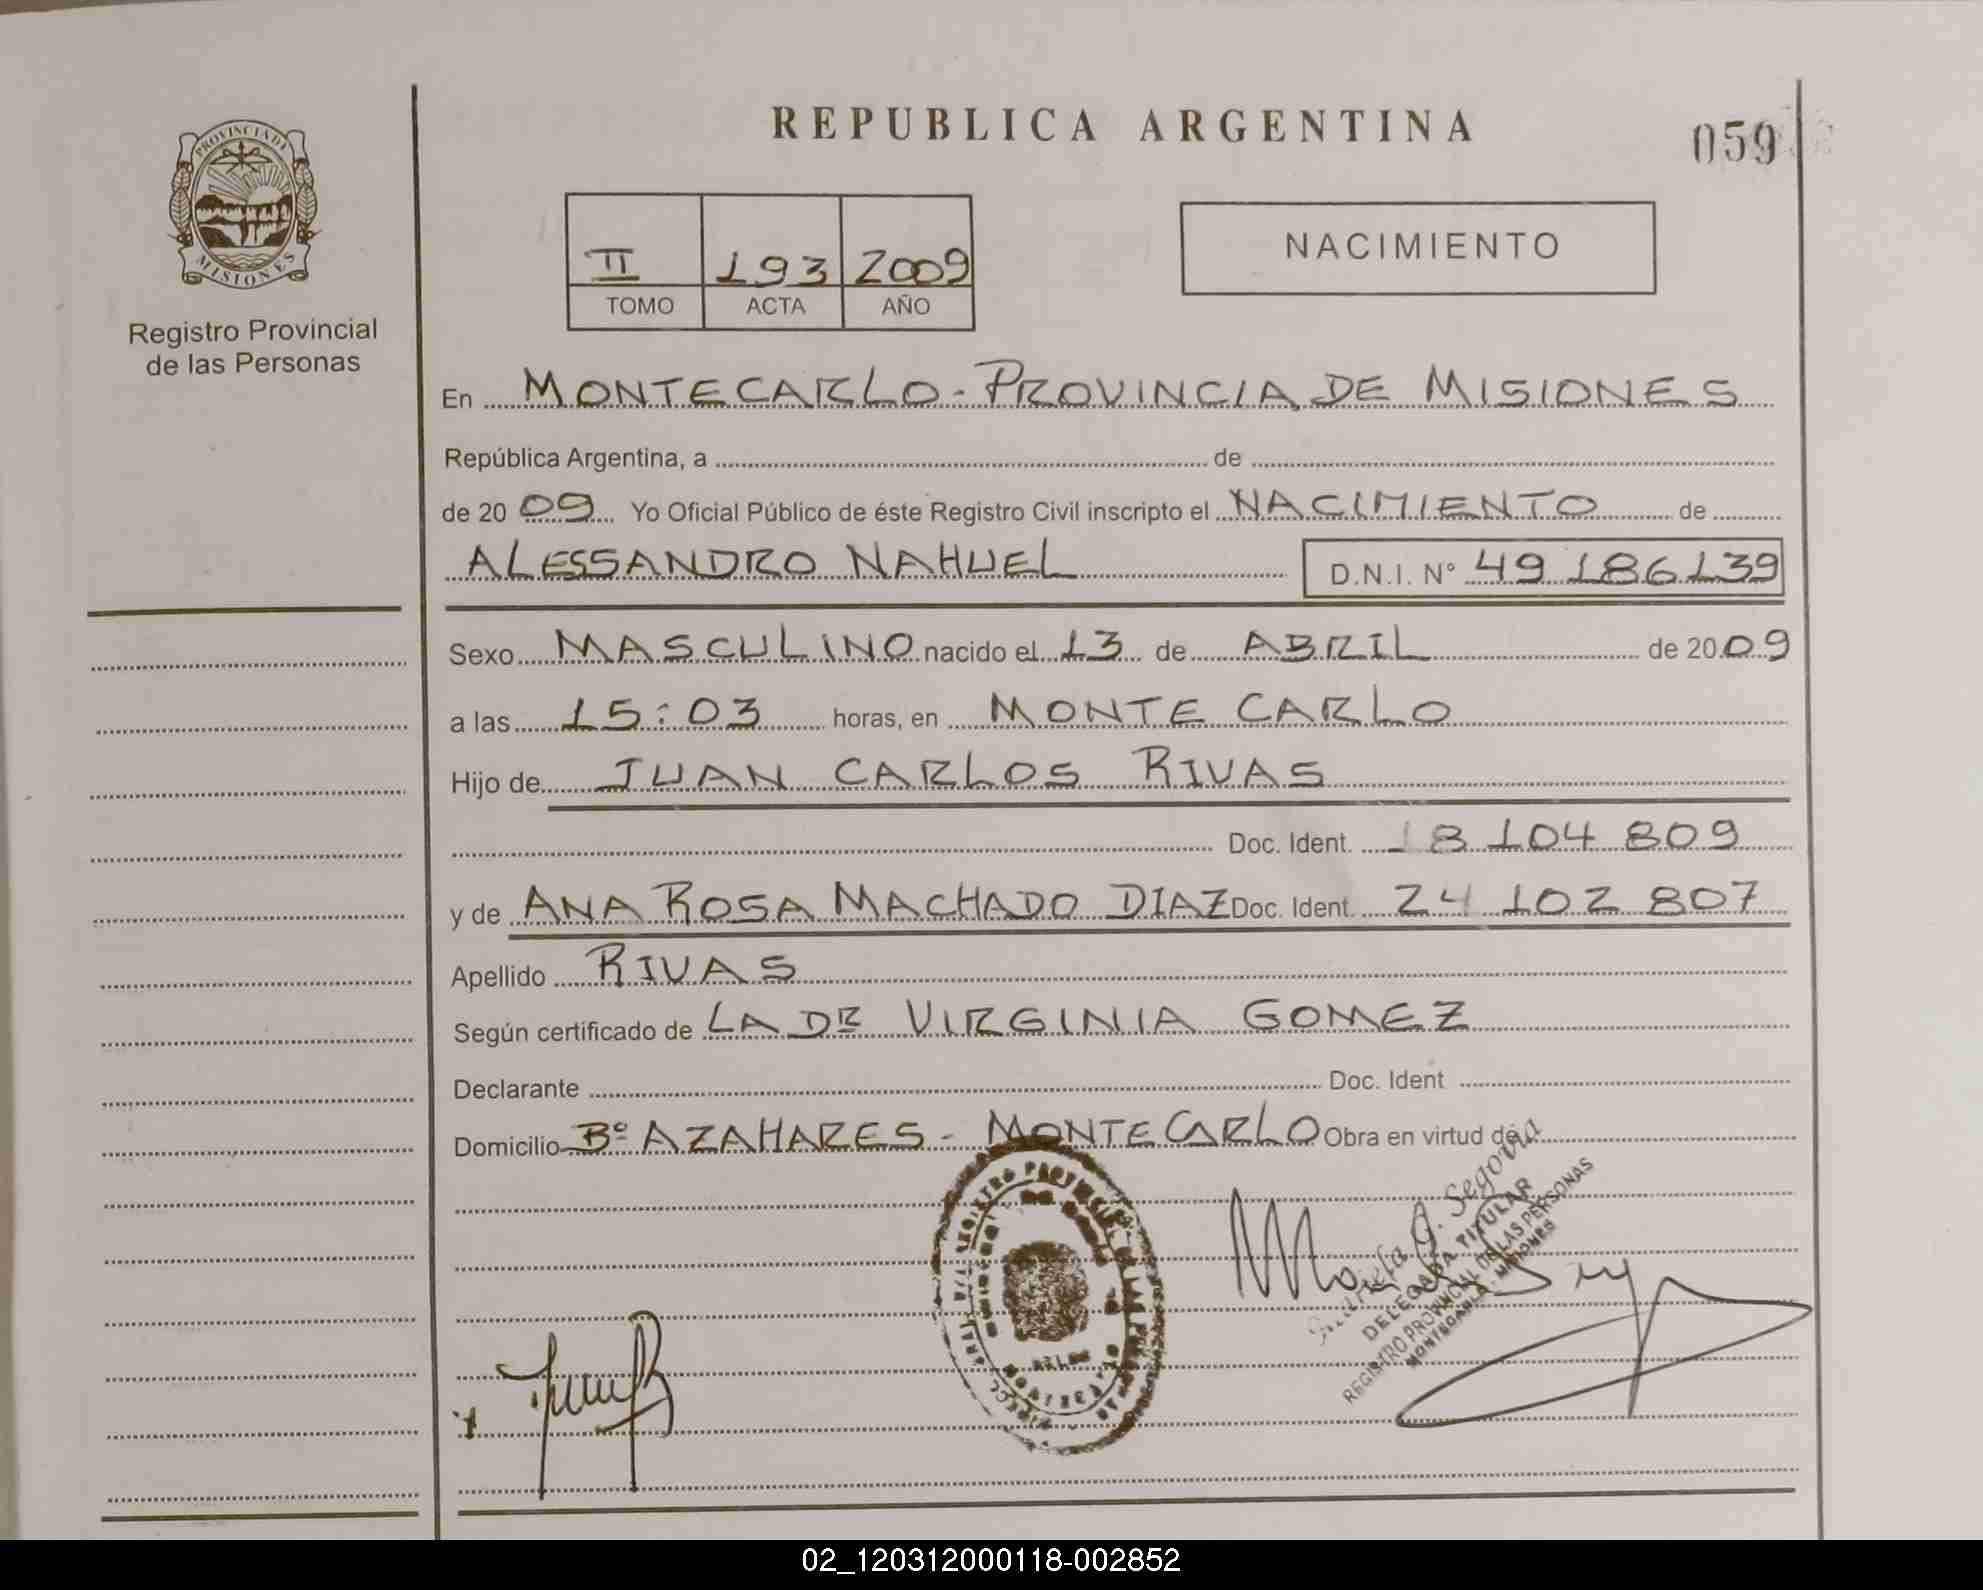 REPUBLICA ARGENTINA
059
PROVINCIA DE
MISIONES
Registro Provincial
de las Personas
II 193 2009
TOMO ACTA AÑO
NACIMIENTO
En MONTECARLO - PROVINCIA DE MISIONES
República Argentina, a de
de 2009 Yo Oficial Público de éste Registro Civil inscripto el NACIMIENTO de
ALESSANDRO NAHUEL D.N.I. N° 49 186139
Sexo MASCULINO nacido el 13 de ABRIL de 2009
a las 15:03 horas, en MONTE CARLO
Hijo de JUAN CARLOS RIVAS
Doc. Ident. 18 104 809
y de ANA ROSA MACHADO DIAZ Doc. Ident. 24 102 807
Apellido RIVAS
Según certificado de LA DR VIRGINIA GOMEZ
Declarante Doc. Ident
Domicilio Bº AZAHARES - MONTECARLO Obra en virtud de
Segovia
DELEGADA TITULAR
REGISTRO PROVINCIAL DE LAS PERSONAS
MONTECARLO - MISIONES
02_120312000118-002852